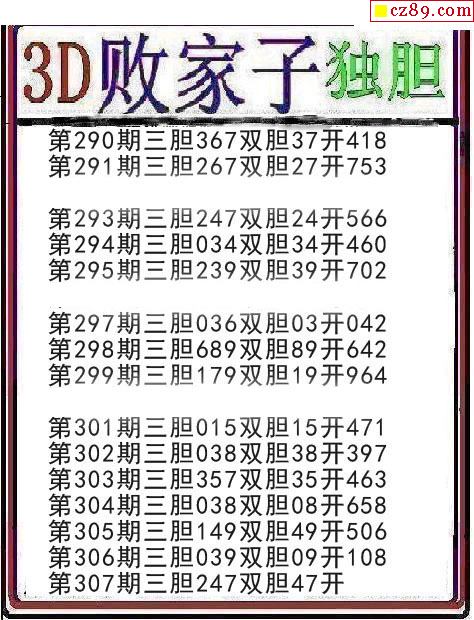 cz89.com
3D败家子独胆
第290期三胆367双胆37开418
第291期三胆267双胆27开753
第293期三胆247双胆24开566
第294期三胆034双胆34开460
第295期三胆239双胆39开702
第297期三胆036双胆03开042
第298期三胆689双胆89开642
第299期三胆179双胆19开964
第301期三胆015双胆15开471
第302期三胆038双胆38开397
第303期三胆357双胆35开463
第304期三胆038双胆08开658
第305期三胆149双胆49开506
第306期三胆039双胆09开108
第307期三胆247双胆47开